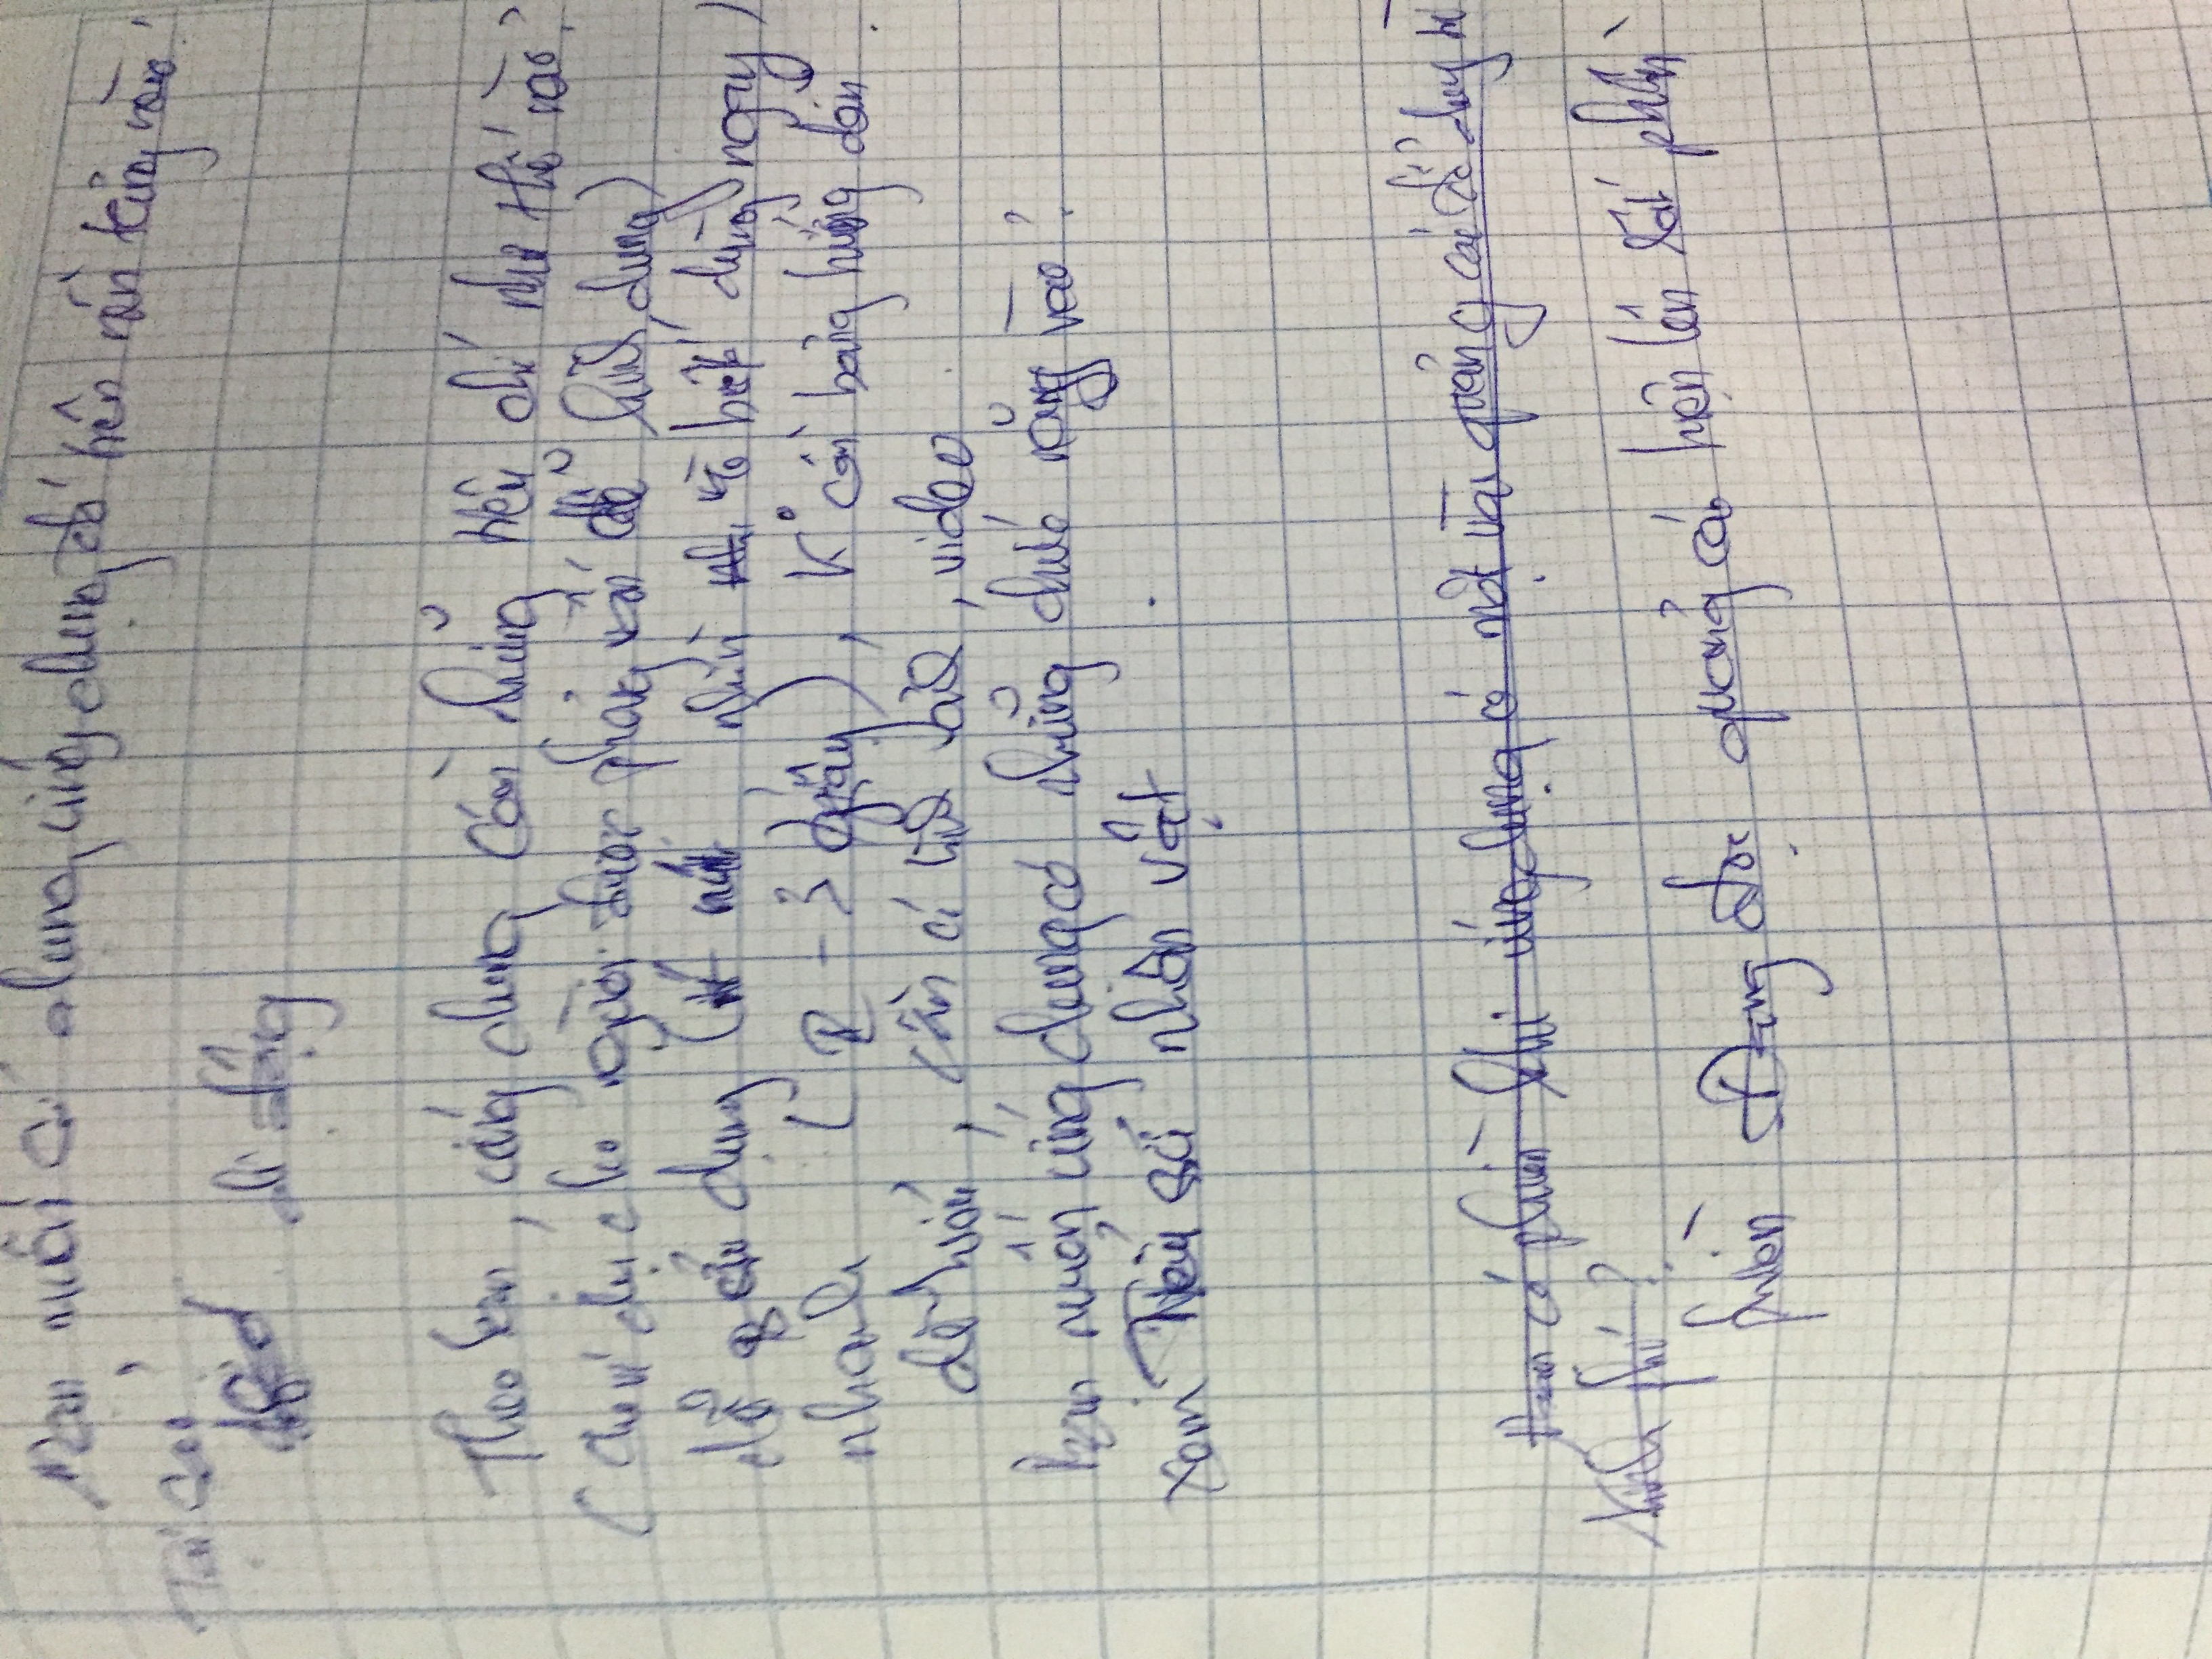 Bạn muốn sử dụng ứng dụng đó trên nền tảng nào?
Tại sao?
di động
Theo bạn, ứng dụng cần những tiêu chí như thế nào?
(Cho ví dụ cho người được phỏng vấn dễ hình dung)
dễ sử dụng (ít nút, nhìn là biết dùng ngay)
nhanh (2 - 3 giây), K° cần bảng hướng dẫn.
dễ hiểu, cần có hình ảnh, video
bạn muốn ứng dụng có những chức năng nào?
xem Tiểu sử nhân vật
Bạn có phiền khi ứng dụng có một vài quảng cáo để duy trì
kinh phí?
phiền Đang đọc quảng cáo hiện lên rất phiền